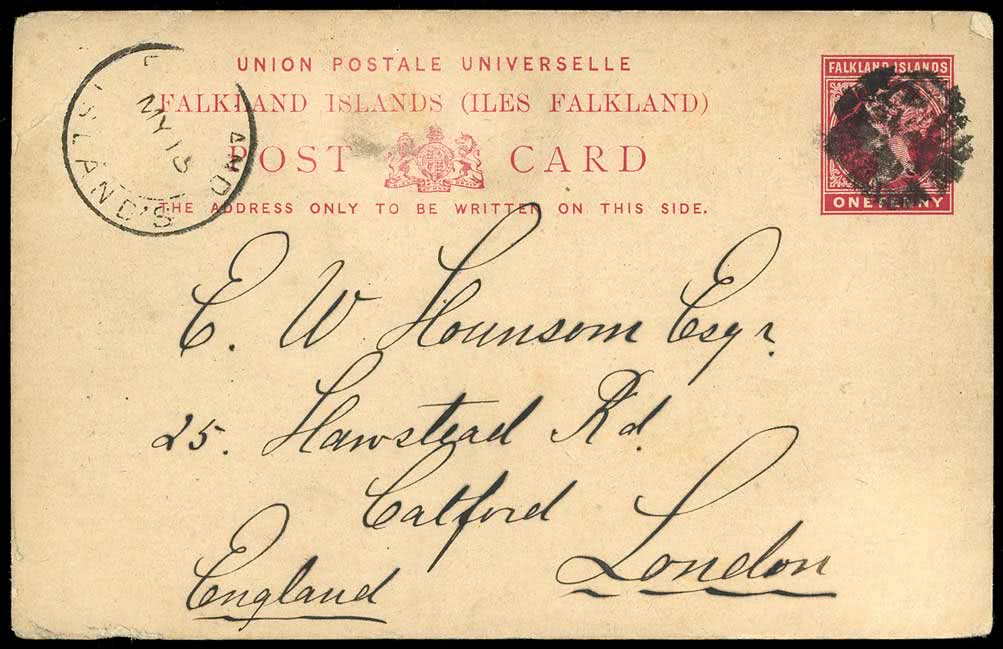 UNION POSTALE UNIVERSELLE
FALKLAND ISLANDS (ILES FALKLAND)
POST CARD
THE ADDRESS ONLY TO BE WRITTEN ON THIS SIDE.
FALKLAND ISLANDS
ONE PENNY
MY 15
ISLANDS
E. W Hounsom Esqr.
25. Hawstead Rd
Catford
London
England